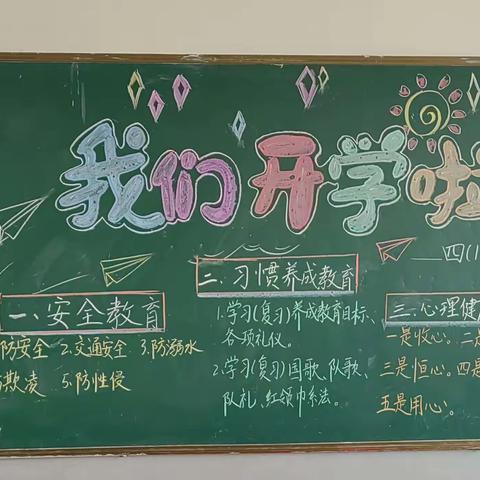 我们开学啦
四(1
一、安全教育
防安全 2.交通安全 3.防溺水
欺凌 5.防性侵
二、习惯养成教育
1.学习(复习)养成教育目标、
各项礼仪。
2.学习(复习)国歌、队歌、
队礼、红领巾系法。
三、心理健
一是收心。二是
三是恒心。四是
五是用心。